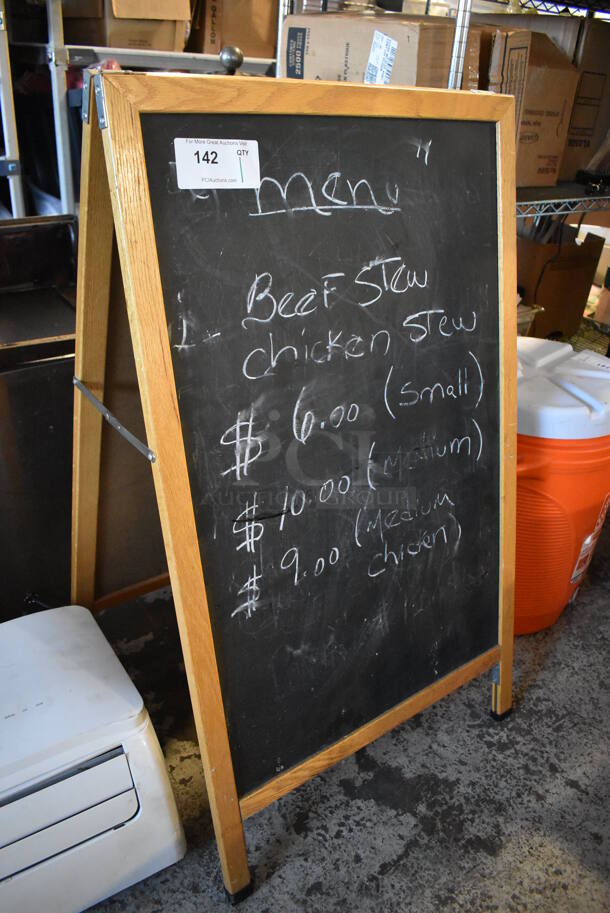 For More Great Auctions Visit
142 QTY 1
PCIAuctions.com
"menu"
Beef Stew
chicken Stew
$ 6.00 (small)
$ 10.00 (medium)
$ 9.00 (Medium
chicken)
PCI
AUCTION GROUP
2500